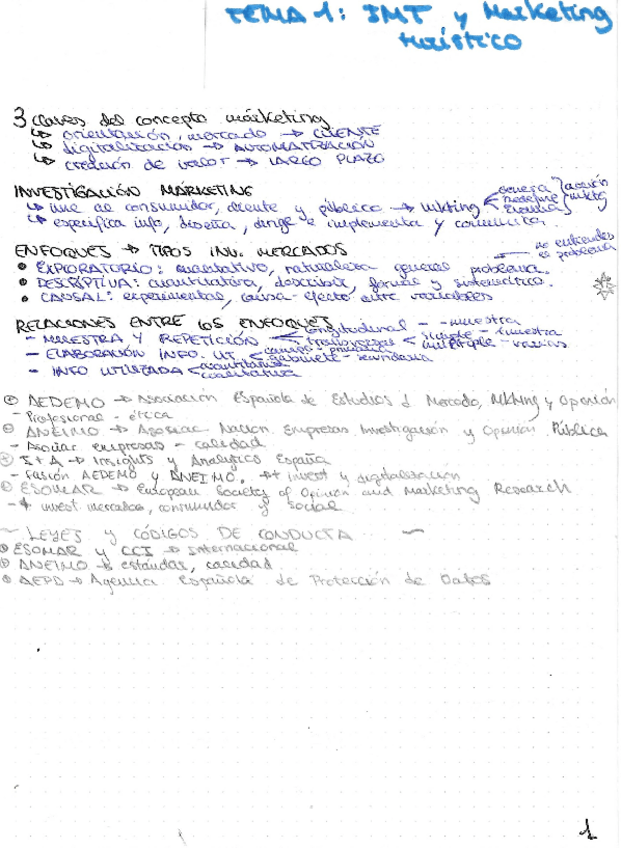 TEMA 1: IMT y Marketing
turístico
3 claves del concepto márketing
↳ orientación, mercado → CLIENTE
↳ digitalización → AUTOMATIZACIÓN
↳ creación de valor → LARGO PLAZO
INVESTIGACIÓN MÁRKETING
↳ une al consumidor, cliente y público → mkting < genera redefine evalúa } acción mktg
↳ especifica info, diseña, dirige e implementa y comunica.
ENFOQUES → TIPOS INV. MERCADOS
no entiendes el problema
• EXPLORATORIO: cualitativo, naturaleza general problema.
• DESCRIPTIVA: cuantitativa, describir, formas y sistemático.
• CAUSAL: experimental, causa-efecto entre variables
RELACIONES ENTRE LOS ENFOQUES
- MUESTRA Y REPETICIÓN < longitudinal - -muestra
transversal < simple - 1 muestra
múltiple - varias
- ELABORACIÓN INFO. UT. < campo - primaria
gabinete - secundaria
- INFO UTILIZADA < cuantitativa
cualitativa
AEDEMO → Asociación Española de Estudios d Mercado, Mkting y Opinión
- Profesional - ética
ANEIMO → Asociac. Nacion. Empresas Investigación y Opinión Pública
- Asociar empresas - calidad
I+A → Insights y Analytics España
- Fusión AEDEMO y ANEIMO. → + invest y digitalización
ESOMAR → European Society of Opinion and Marketing Research
- + invest mercados, consumidor y social
~ LEYES y CÓDIGOS DE CONDUCTA ~
ESOMAR y CCI → Internacional
ANEIMO → estándar, calidad
AEPD → Agencia Española de Protección de Datos
1